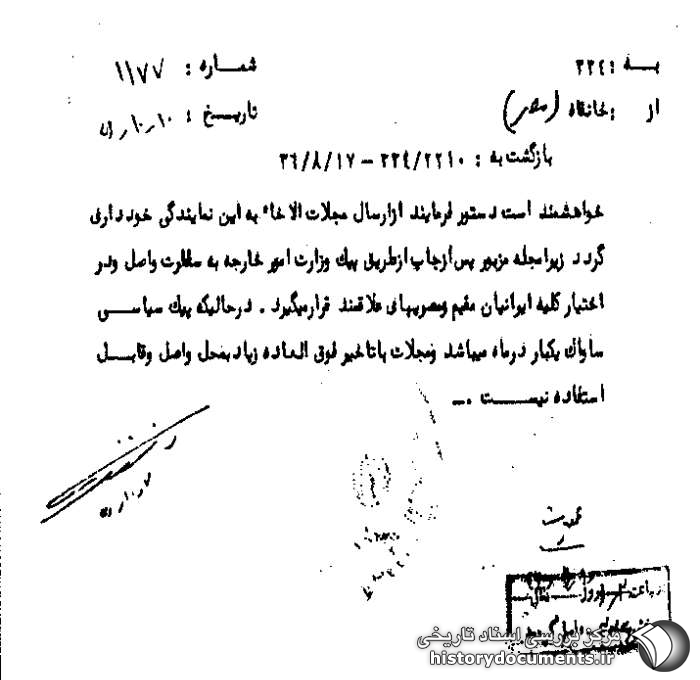 به : ۲۲٤ شماره : ۱۱۷۷
از : خانقاه (مصر) تاریخ :
بازگشت به : ۲۲٤/۲۲۱۰ – ۳٦/۸/۱۷
خواهشمند است دستور فرمایند ازارسال مجلات الاخاء به این نمایندگی خودداری
گردد زیرامجله مزبور پس ازچاپ ازطریق پیك وزارت امور خارجه به سفارت واصل ودر
اختیار کلیه ایرانیان مقیم ومصریهای علاقمند قرارمیگیرد . درحالیکه پیك سیاسی
ساواك یکبار درماه میباشد ومجلات باتاخیر فوق العاده زیاد بمحل واصل وقابل
استفاده نیست .ـ
مرکز بررسی اسناد تاریخی
historydocuments.ir